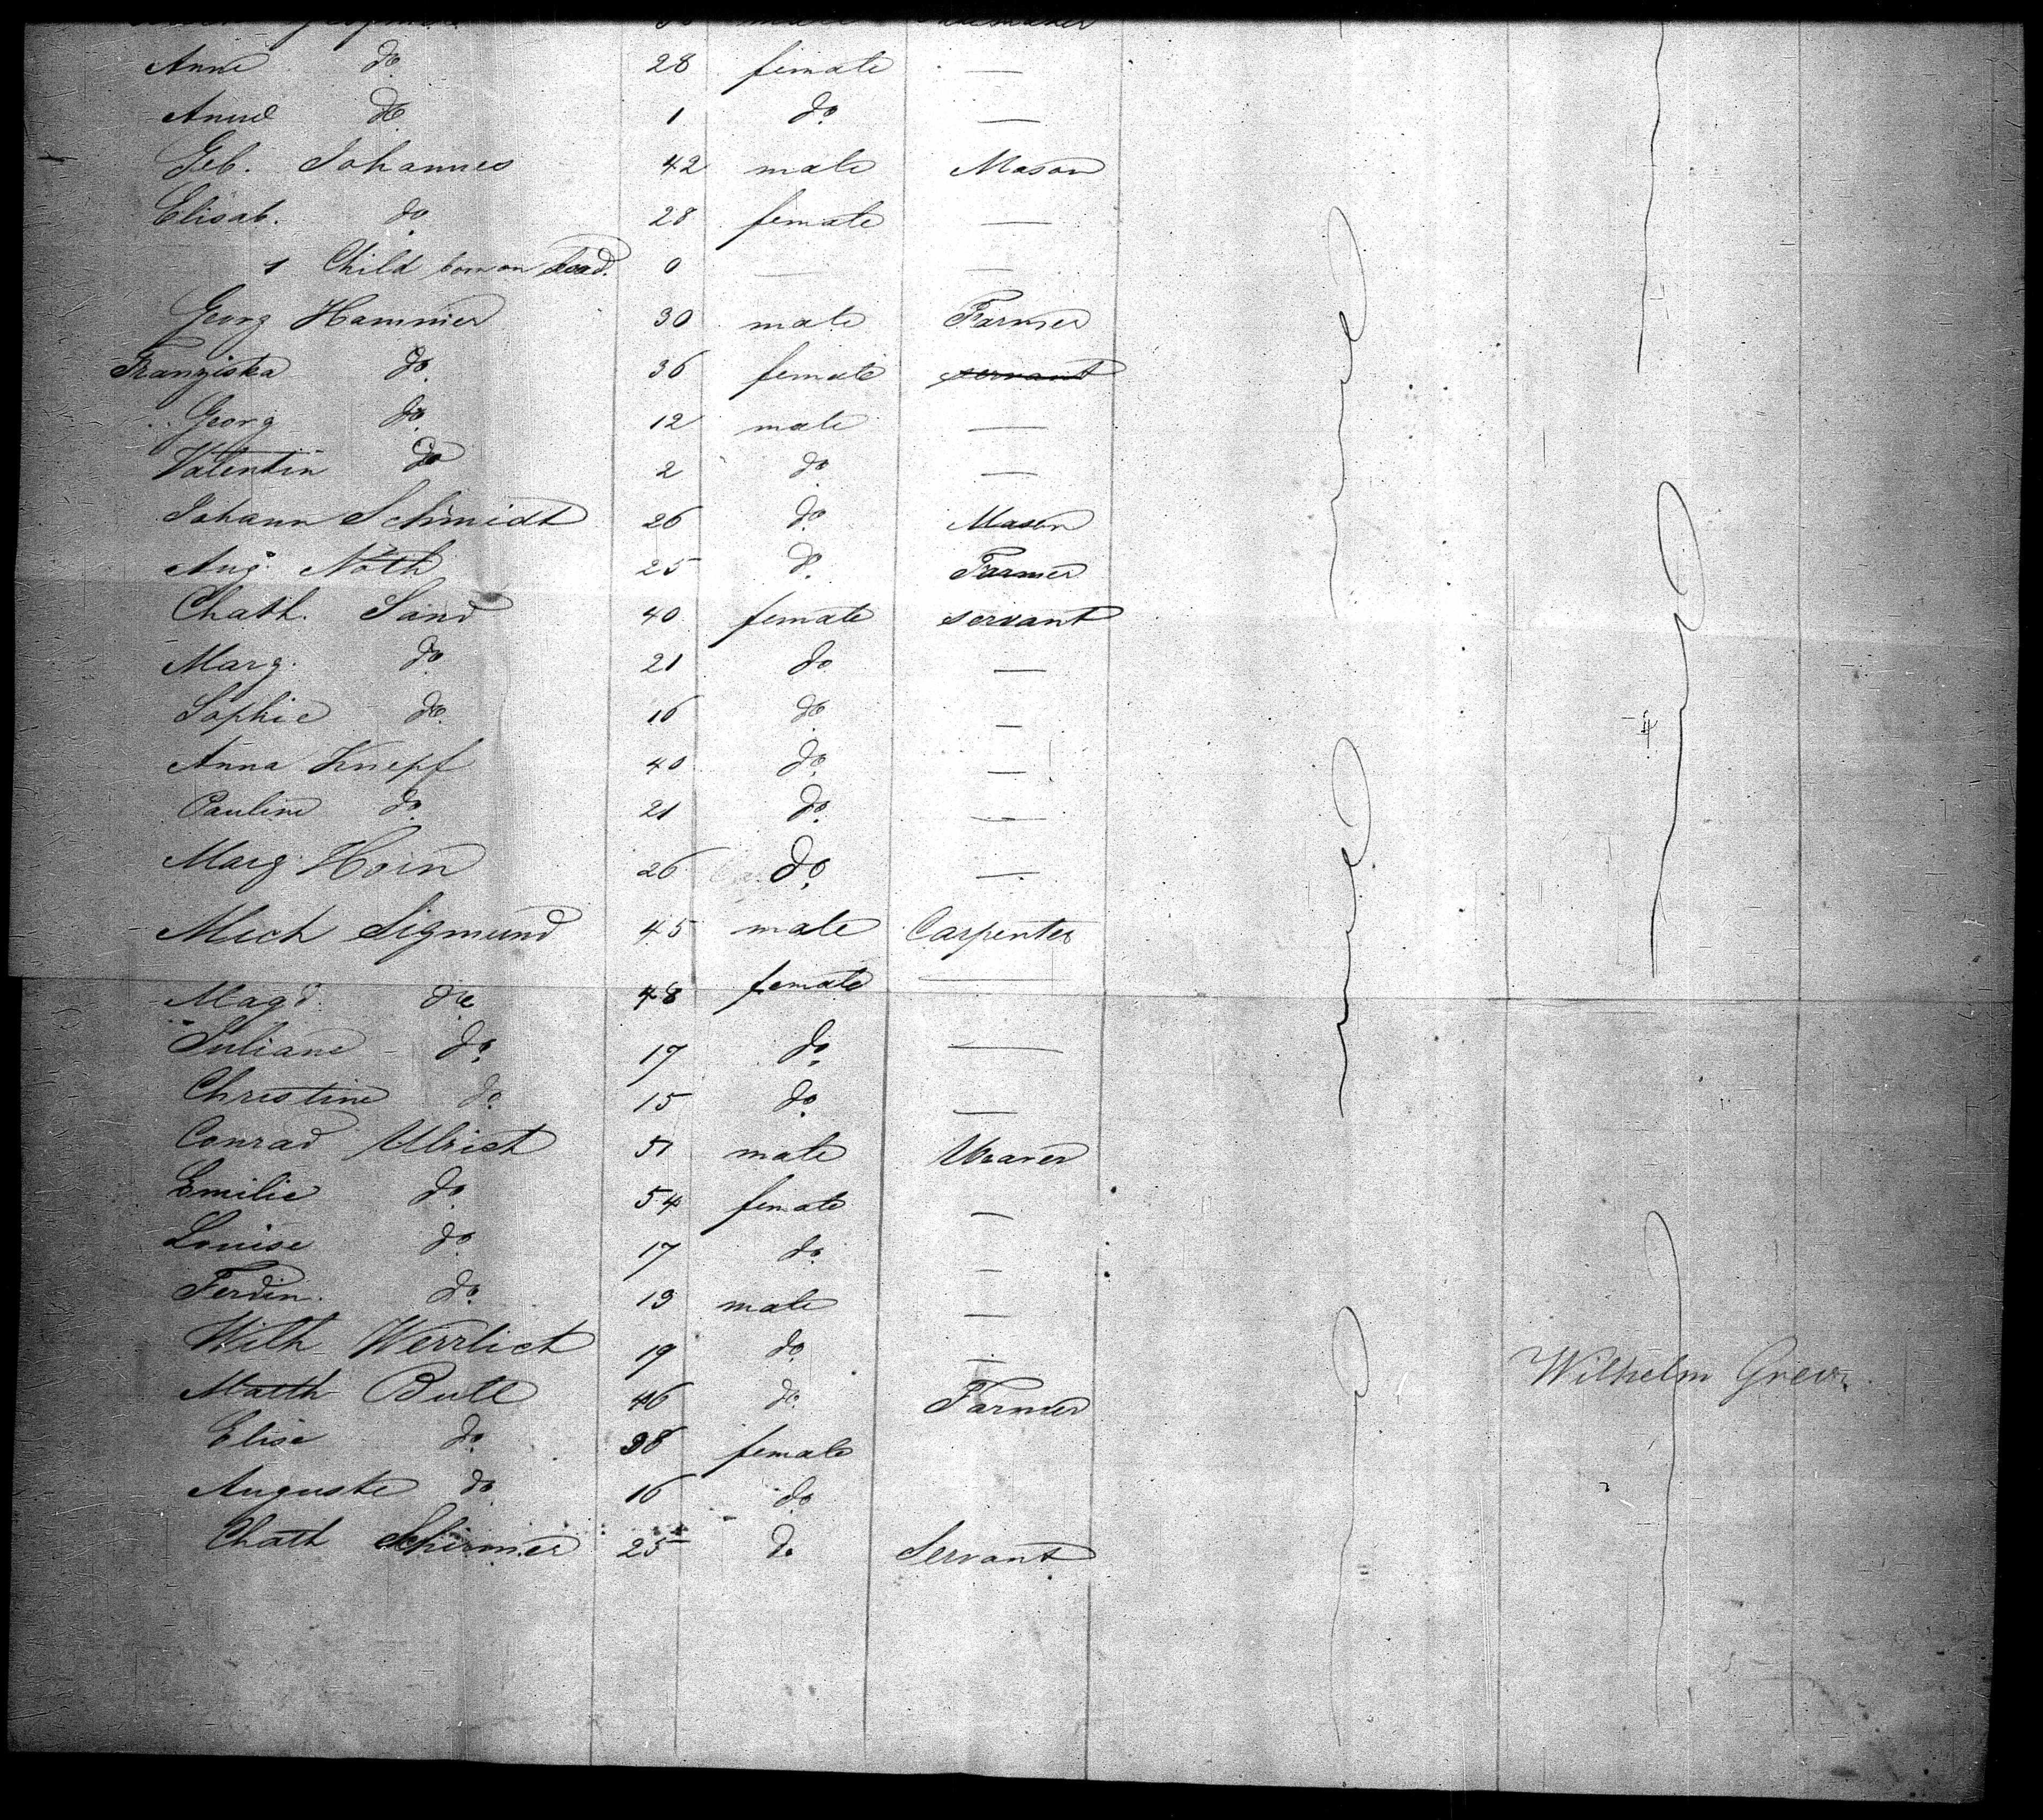 Anne do 28 female —
Anne do 1 do —
Geb. Johannes 42 male Mason
Elisab. do 28 female —
1 Child born on board. 0 — —
Georg Hammer 30 male Farmer
Franziska do 36 female servant
Georg do 12 male —
Valentin do 2 do —
Johann Schmidt 26 do Mason
Aug. Nöth 25 do Farmer
Chath. Sand 40 female servant
Marg. do 21 do —
Sophie do 16 do —
Anna Knepf 40 do —
Pauline do 21 do —
Marg. Horn 26 do —
Mich Sigmund 45 male Carpenter
Magd. do 48 female —
Juliane do 17 do —
Christine do 15 do —
Conrad Ulrich 51 male Weaver
Emilie do 54 female —
Louise do 17 do —
Ferdin. do 13 male —
Wilh Werrlich 19 do —
Math Bull 46 do Farmer
Wilhelm Greve
Elise do 38 female
Auguste do 16 do
Chath Schirmer 25 do Servant